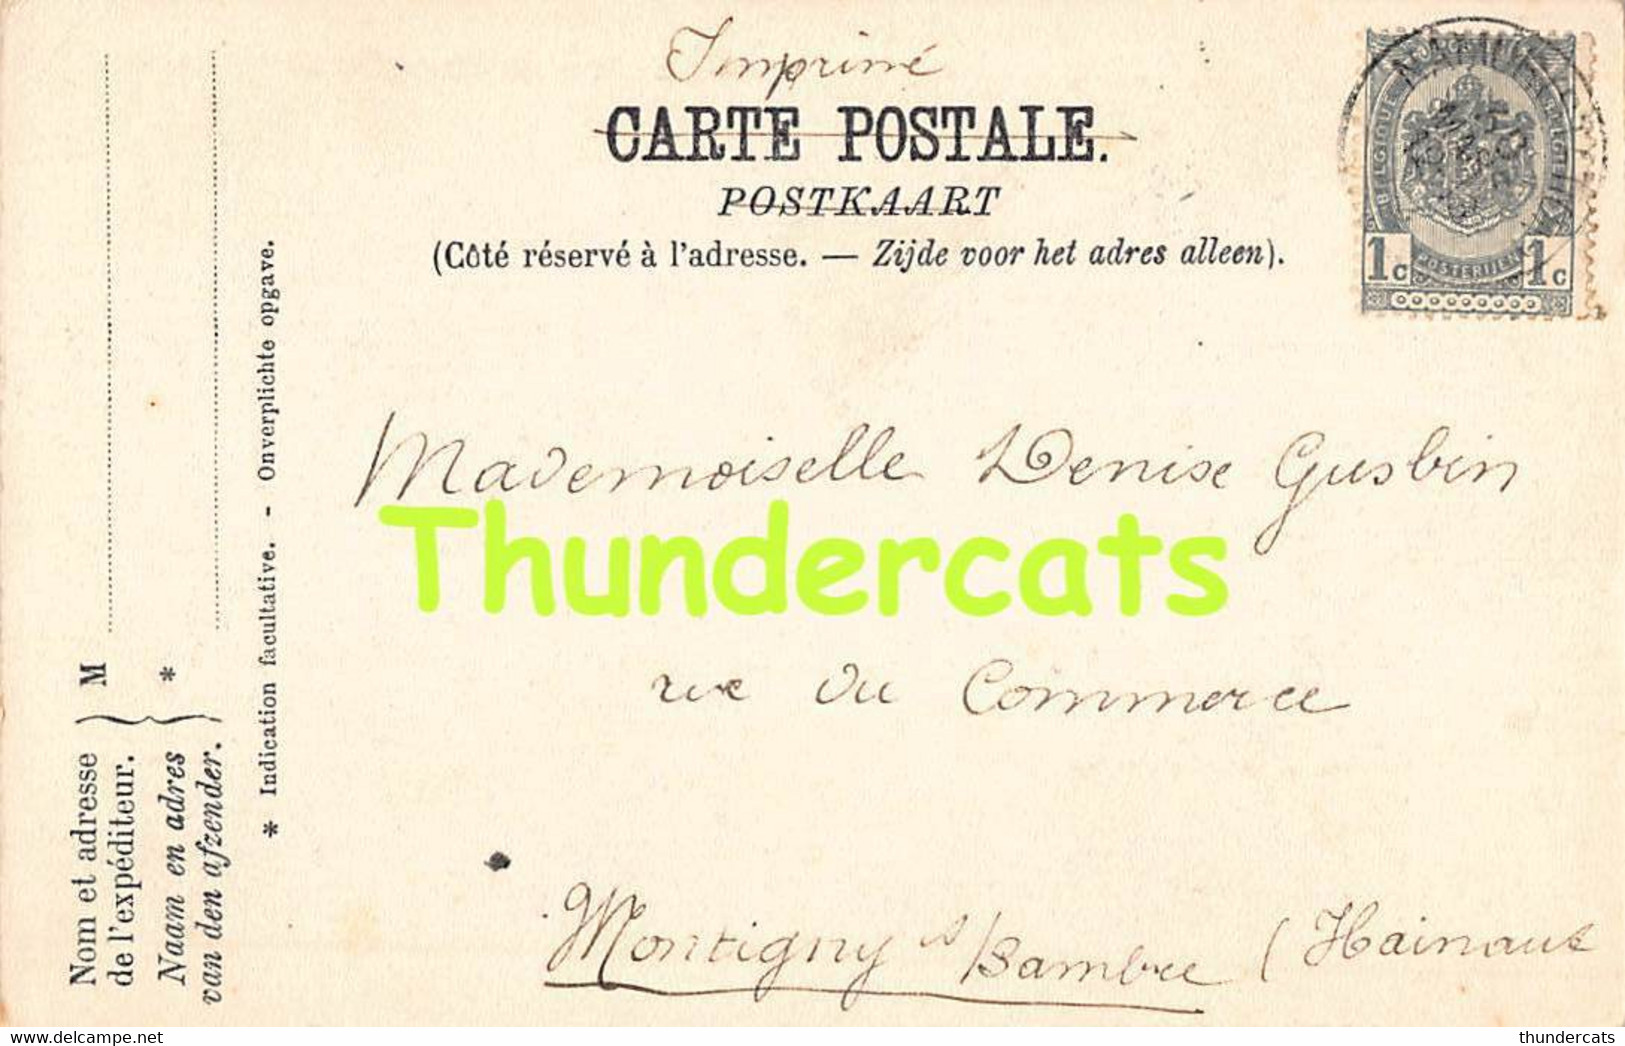 Imprimé
CARTE POSTALE.
POSTKAART
(Côté réservé à l'adresse. — Zijde voor het adres alleen).
BELGIQUE
1c POSTERIJEN 1c
Mademoiselle Denise Gusbin
Thundercats
rue du Commerce
Montigny s/Sambre (Hainaut
Nom et adresse
de l'expéditeur. } M
Naam en adres
van den afzender. } *
* Indication facultative. - Onverplichte opgave.
thundercats | delcampe.net